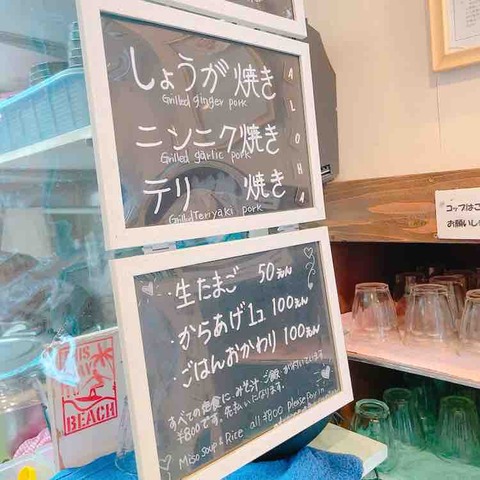 しょうが焼き
Grilled ginger pork
ニンニク焼き
Grilled garlic pork
テリ 焼き
Grilled Terryaki pork
ALOHA
・生たまご 50えん
・からあげ1コ 100えん
・ごはんおかわり 100えん
すべての定食に、みそ汁・ご飯が付いています
¥800です。先払いになります。
Miso soup & Rice all ¥800 please pay in
コップはこ
お願いし
THIS WAY
BEACH